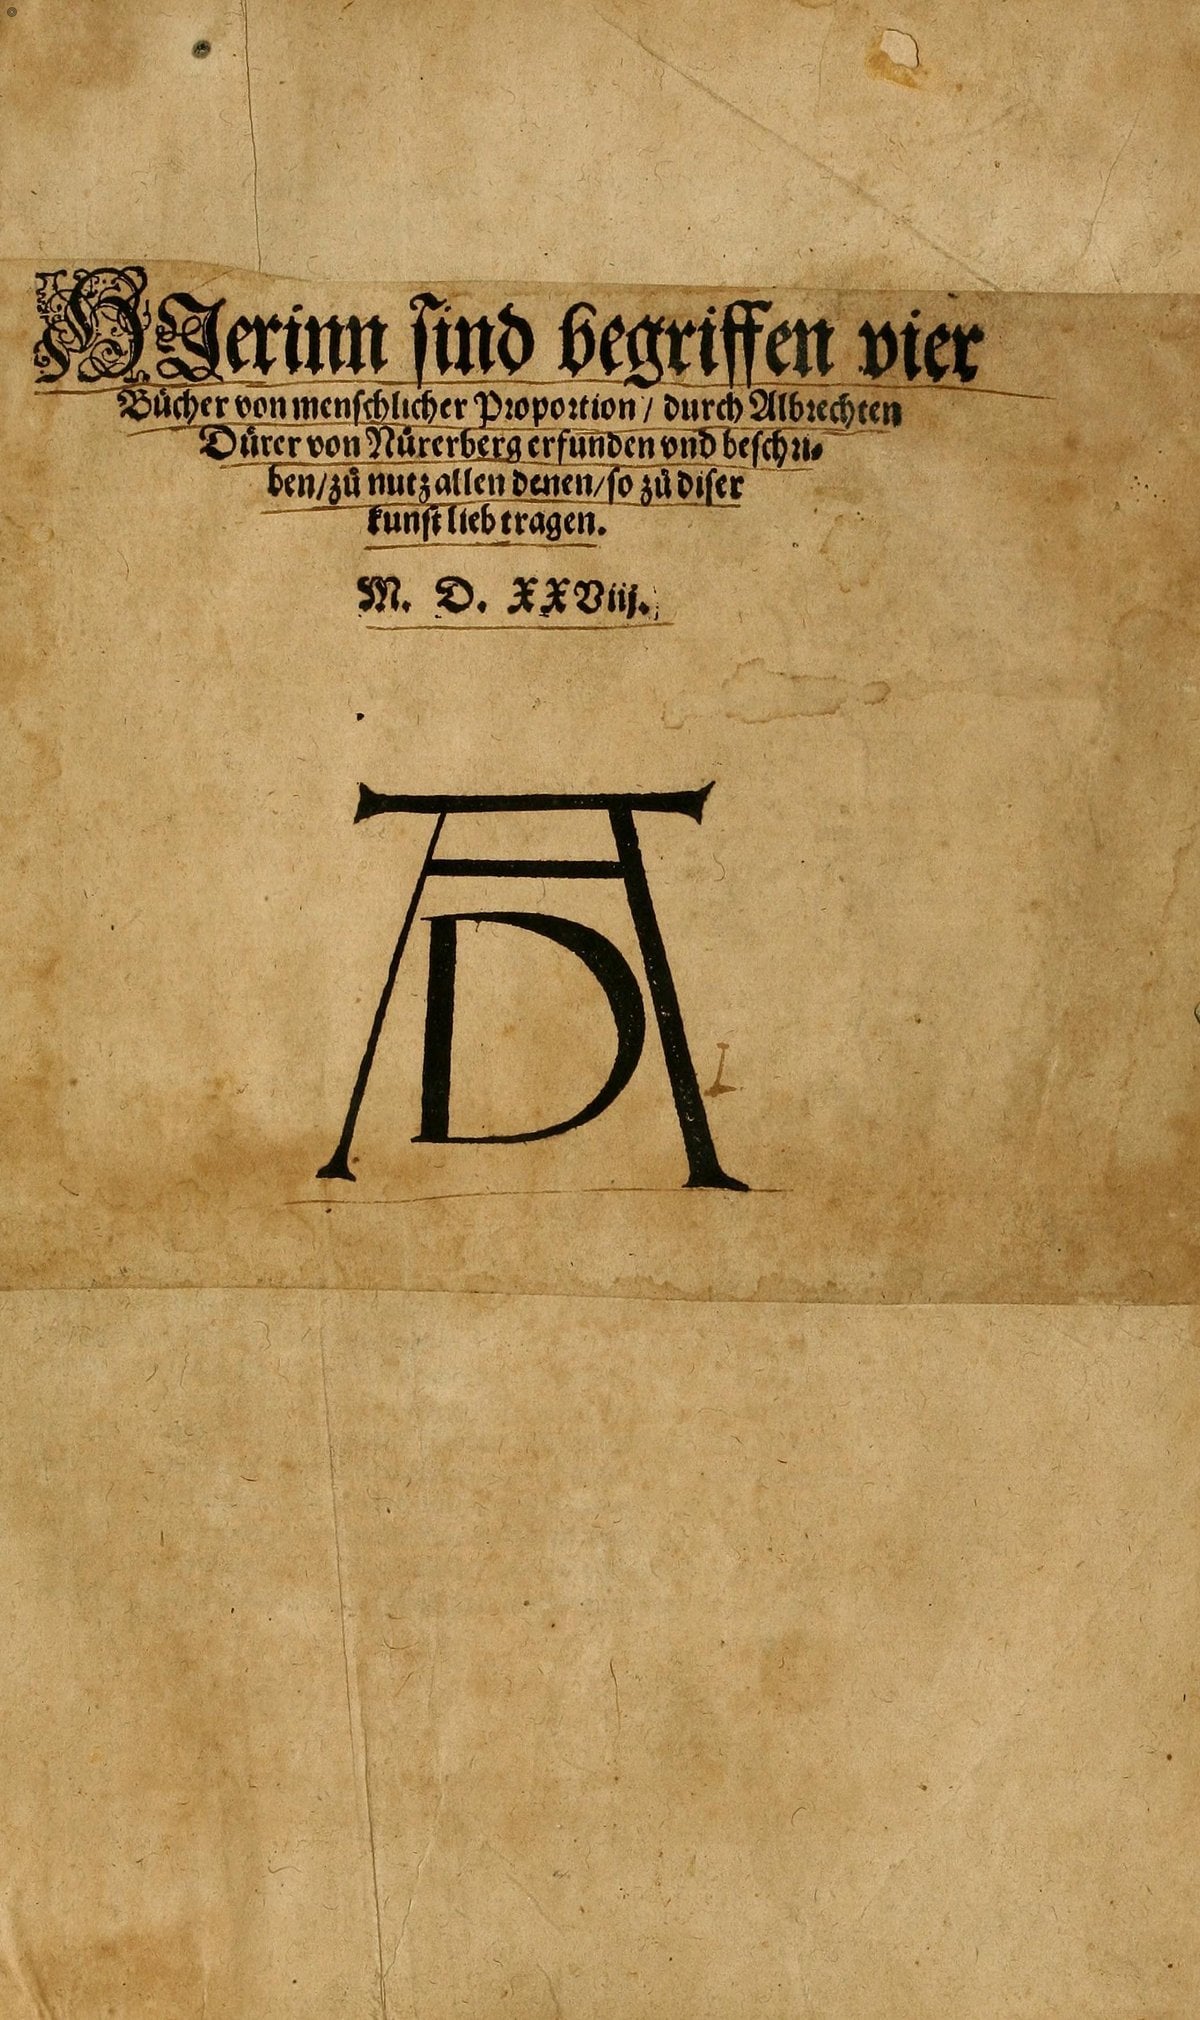 HJerinn sind begriffen vier
Bücher von menschlicher Proportion / durch Albrechten
Dürer von Nürerberg erfunden vnd beschri⸗
ben / zů nutz allen denen / so zů diser
kunst lieb tragen.
M. D. XXViij.
AD